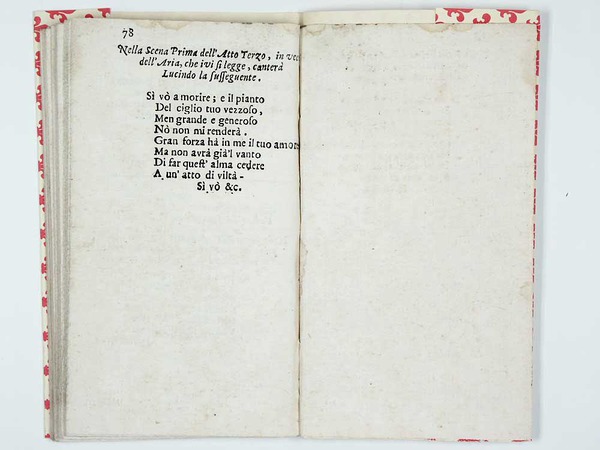 78
Nella Scena Prima dell' Atto Terzo, in vece
dell' Aria, che ivi ſi legge, canterà
Lucindo la ſuſſeguente.
Sì vò a morire; e il pianto
Del ciglio tuo vezzoſo,
Men grande e generoſo
Nò non mi renderà.
Gran forza hà in me il tuo amore
Ma non avrà già'l vanto
Di far queſt' alma cedere
A un' atto di viltà-
Sì vò &c.